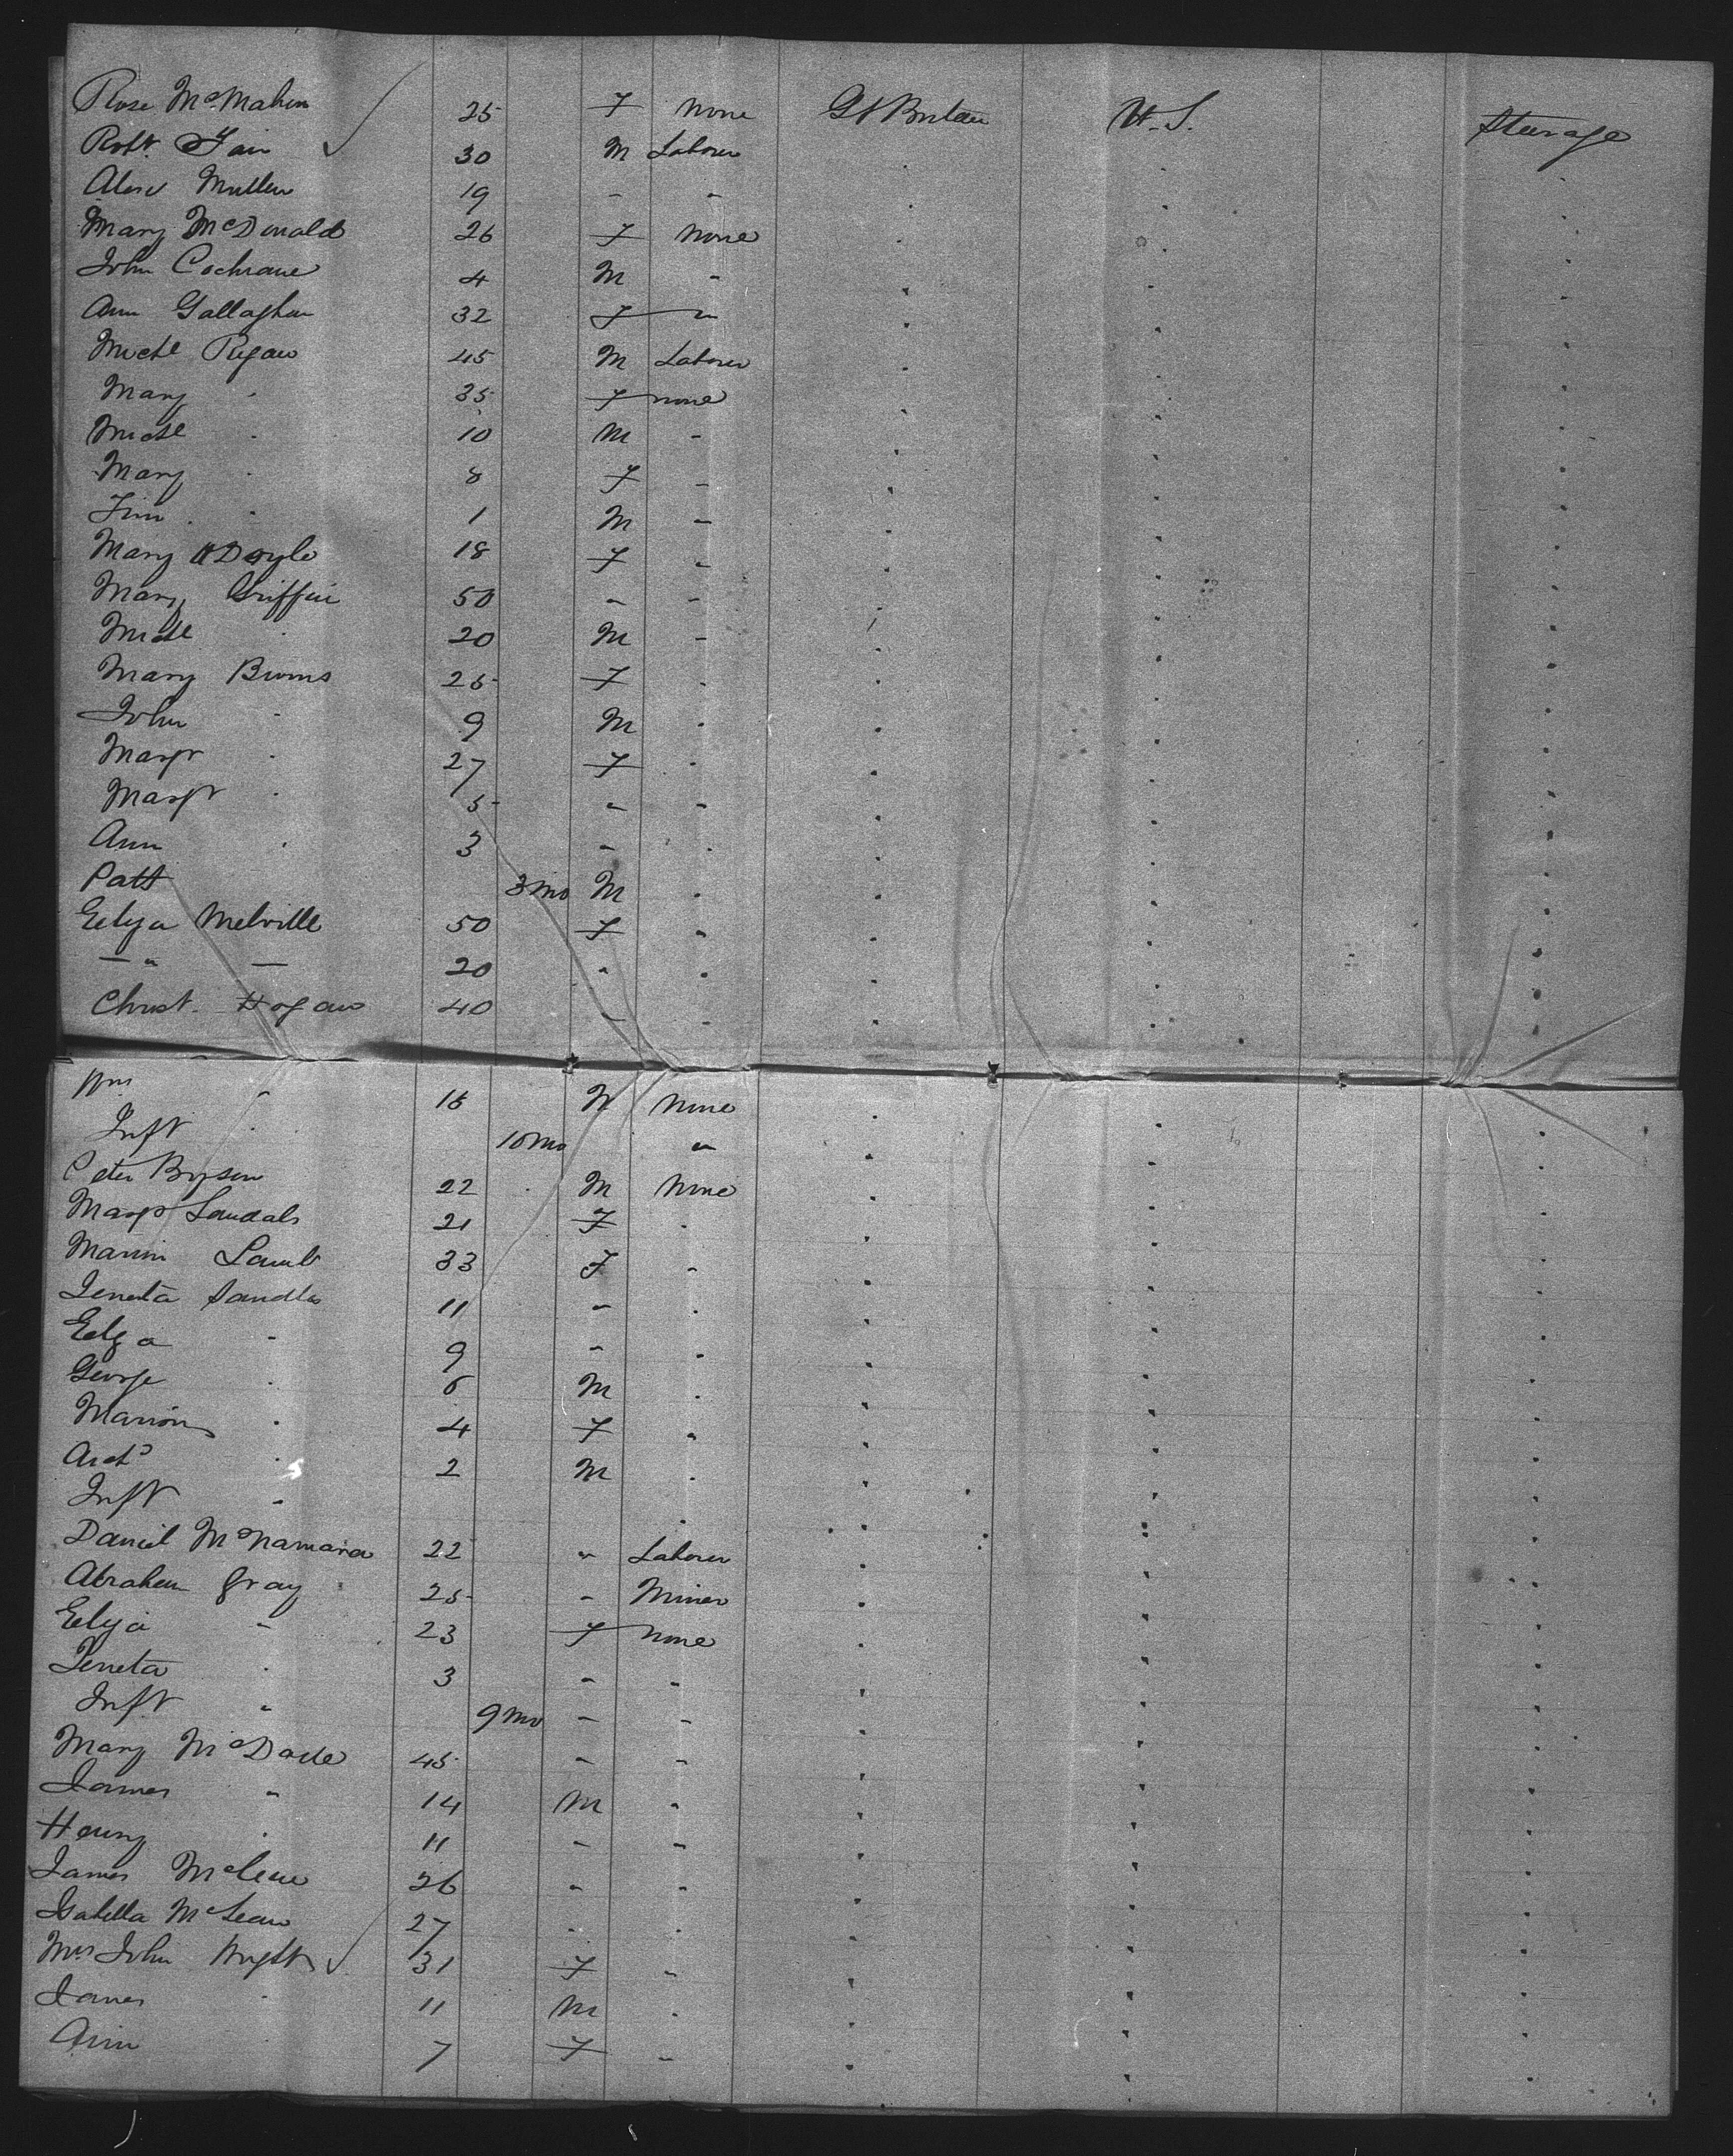 Rose McMahon 25 F none Gt Britain U.S. Steerage
Robt Fair 30 M Laborer
Alexr Mullen 19 - -
Mary McDonald 26 F none
John Cochrane 4 M -
Ann Gallagher 32 F "
Michl Regan 45 M Laborer
Mary " 35 F none
Michl " 10 M -
Mary " 8 F -
Tim " 1 M -
Mary Doyle 18 F -
Mary Griffin 50 - -
Michl " 20 M -
Mary Burns 25 F -
John " 9 M -
Margt " 27 F -
Margt " 5 - -
Ann " 3 - -
Patt 3 mo M -
Eliza Melville 50 F "
- " - 20 " "
Christ. Hogan 40 - -
Wm " 16 M None
Inft " 10 mo "
Peter Bryson 22 M None
Margt 21 F -
Marion Lamb 33 F -
Jeneta 11 - -
Eliza " 9 - -
George " 6 M -
Marion " 4 F "
Archd " 2 M -
Inft "
Daniel McNamara 22 " Laborer
Abraham Gray 25 - Miner
Eliza " 23 F None
Jeneta " 3 - -
Inft " 9 mo - -
Mary McDade 45 - -
James " 14 M "
Henry " 11 - -
James 26 " "
Isabella McLean 27 - -
Mrs John Wright 31 F -
James " 11 M -
Ann 7 F -